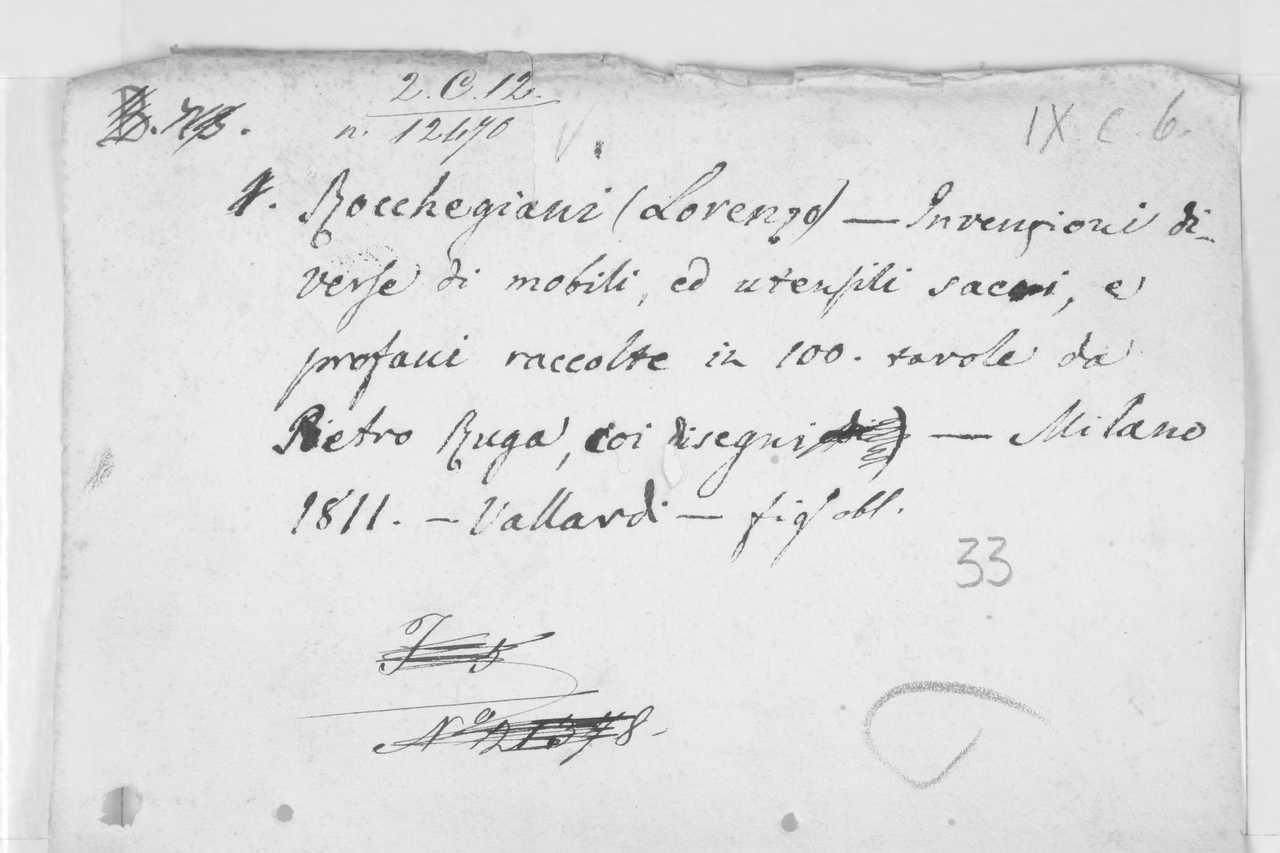 2. C. 12.
n. 12470
IX. C. 6.
4. Rocchegiani (Lorenzo) — Invenzioni di-
verse di mobili, ed utensili sacri, e
profani raccolte in 100. tavole da
Pietro Ruga, coi disegni — Milano
1811. — Vallardi — fig obl.
33
N.o 21378.